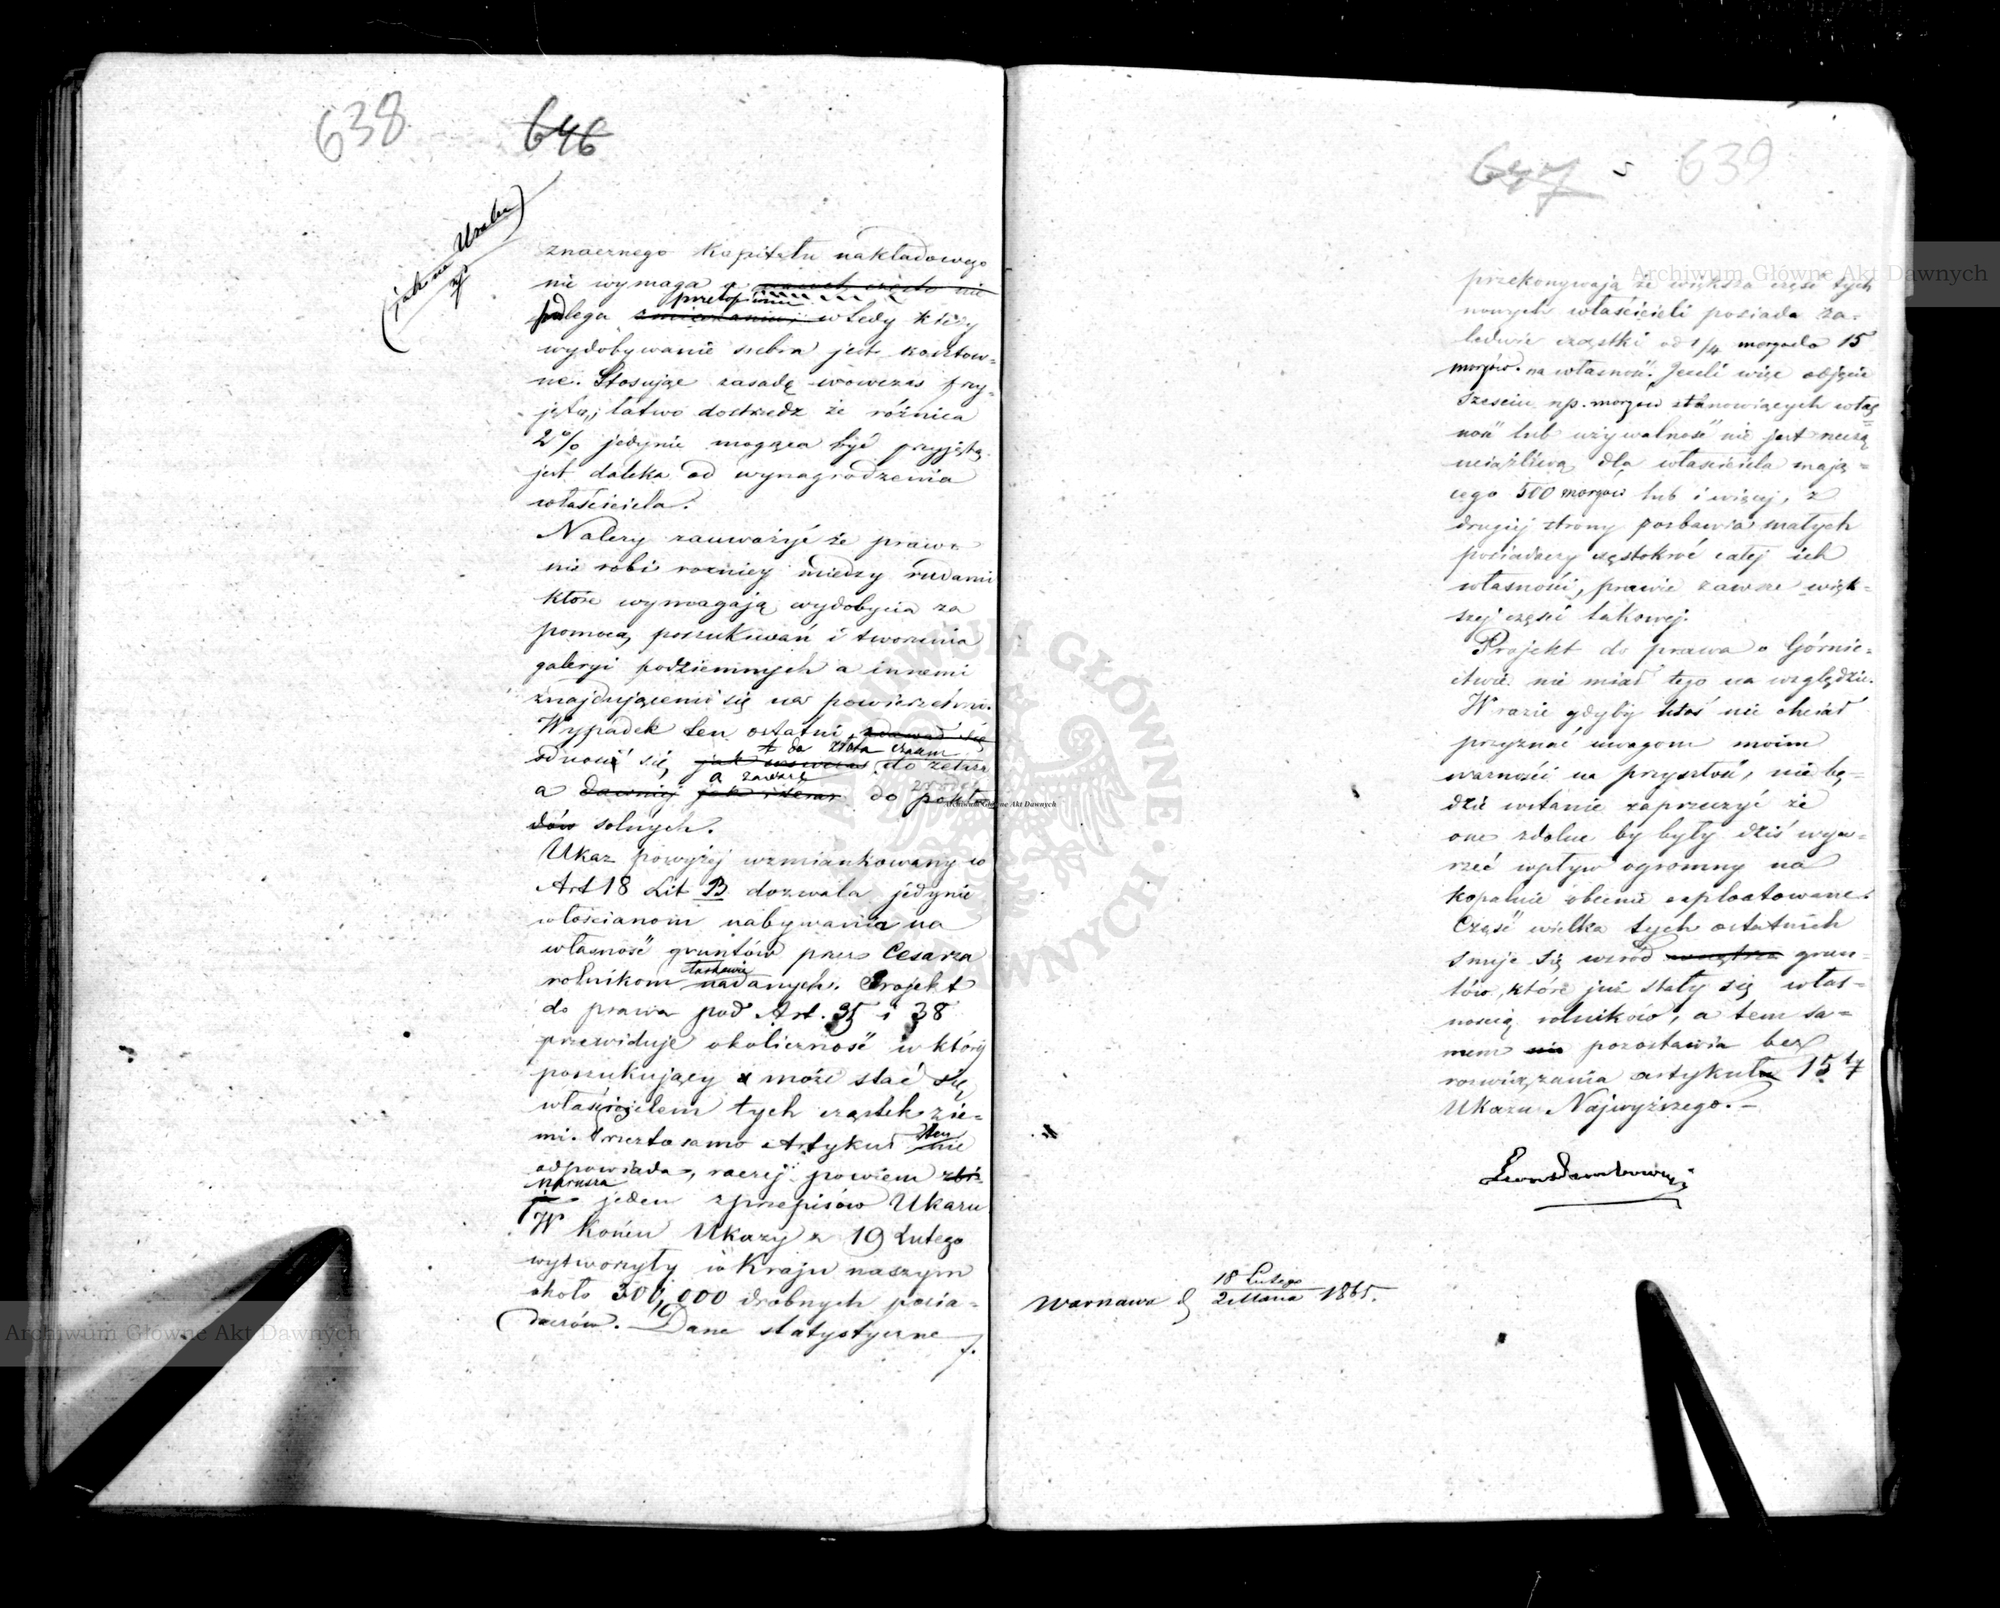 638
646
(jak na Uralu)
znacznego kapitału nakładowego
nie wymaga a
przetopieniu
podlega zmieszaniu, wtedy kiedy
wydobywanie srebra jest kosztow=
ne. Stosując zasadę wowczas przy=
jętą, łatwo dostrzedz że różnica
2% jedynie mogąca być przyjętą
jest daleka od wynagrodzenia
właściciela.
Nalezy zauważyć że prawo
nie robi roznicy miedzy rudami
które wymagają wydobycia za
pomocą poszukiwań i tworzenia
galeryi podziemnych a innemi
znajdującemi się na powierzchni.
Wypadek ten ostatni zdawał się
to do złota czasem
odnosi się, jak wowczas do żelaza
a zawsze
a dawniej jak i teraz do pokła
dów solnych.
Ukaz powyżej wzmiankowany w
Art 18 Lit B dozwala jedynie
włościanom nabywania na
własność gruntów przez Cesarza
łaskawie
rolnikom nadanych. Projekt
do prawa pod Art. 35 i 38
przewiduje okoliczność w której
poszukujący może stać się
właścicielem tych cząstek zie=
mi. Przezto samo Artykuł ten nie
odpowiada, raczej powiem
narusza
jeden z przepisów Ukazu
W końcu Ukazy z 19 Lutego
wytworzyły w Kraju naszym
około 300,000 drobnych posia=
daczów. Dane statystyczne
647
5
639
przekonywają że większa część tych
nowych właścicieli posiada za=
ledwie cząstki od 1/4 morga do 15
morgów na własność. Jeżeli więc objęcie
sześciu np. morgów stanowiących włas
ność lub używalność nie jest rzeczą
uciążliwą dla właściciela mają=
cego 500 morgów lub i więcej, z
drugiej strony pozbawia małych
posiadaczy częstokroć całej ich
własności, prawie zawsze więk=
szej części takowej.
Projekt do prawa o Górnic=
twie nie miał tego na względzie.
W razie gdyby ktoś nie chciał
przyznać uwagom moim
ważności na przyszłość, nie bę=
dzie wstanie zaprzeczyć że
one zdolne by były dziś wywa=
rzeć wpływ ogromny na
kopalnie obecnie exploatowane.
Część wielka tych ostatnich
snuje się wśród wnętrza grun=
tów, które już stały się włas=
nością rolników, a tem sa=
mem nie pozostawia bez
rozwiązania artykuł 15ty
Ukazu Najwyższego. –
Warszawa d 18 Lutego
2 Marca 1865.
Archiwum Główne Akt Dawnych
Archiwum Główne Akt Dawnych
Archiwum Główne Akt Dawnych
ARCHIWUM GŁÓWNE AKT DAWNYCH